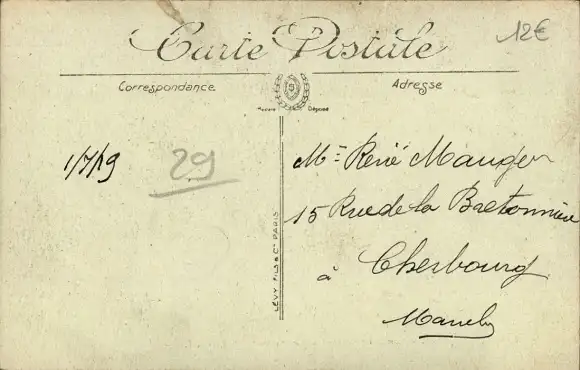 12€
Carte Postale
Correspondance
Adresse
Marque Déposée
1/7/19
29
Mr René Mauger
15 Rue de la Bretonnière
à Cherbourg
Manche
LÉVY FILS & Cie PARIS